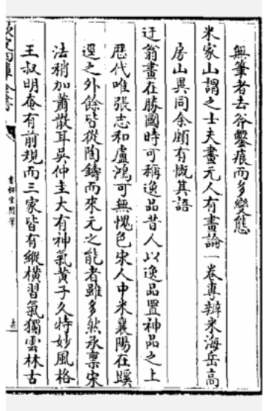 無筆者去斧鑿痕而多變態
米家山謂之士夫畫元人有畫論一卷專辨米海岳高
房山異同余頗有慨其語
迂翁畫在勝國時可稱逸品昔人以逸品置神品之上
歷代唯張志和盧鴻可無愧色宋人中米襄陽在蹊
逕之外餘皆從陶鑄而來元之能者雖多然承稟宋
法稍加蕭散耳吳仲圭大有神氣黃子久特妙風格
王叔明奄有前規而三家皆有縱橫習氣獨雲林古